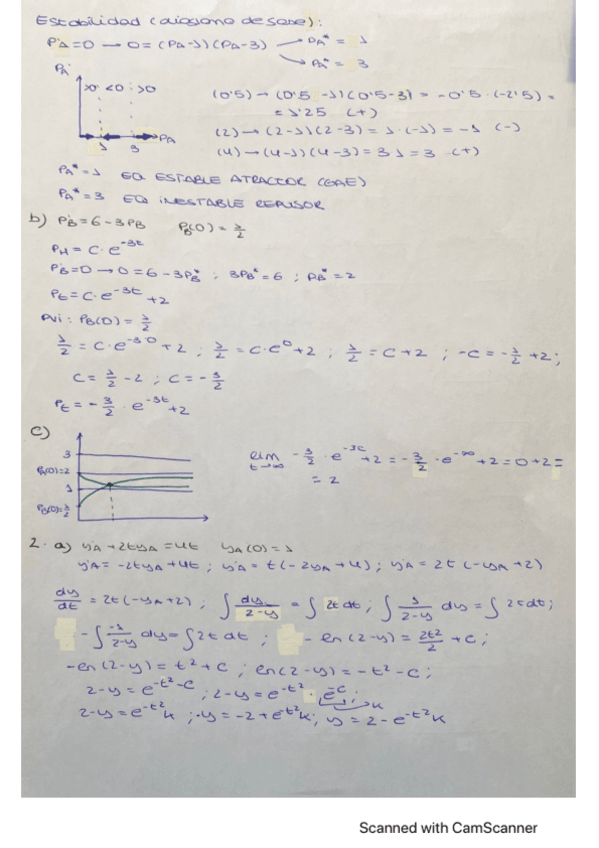 Estabilidad (diagrama de fases):
ṖA=0 → 0=(PA-1)(PA-3) → PA* = 1
→ PA* = 3
ṖA
>0 <0 >0
(0'5) → (0'5-1)(0'5-3) = -0'5·(-2'5) =
= 1'25 (+)
(2) → (2-1)(2-3) = 1·(-1) = -1 (-)
PA
1 3
(4) → (4-1)(4-3) = 3·1 = 3 (+)
PA* = 1 EQ ESTABLE ATRACTOR (GAE)
PA* = 3 EQ INESTABLE REPULSOR
b) ṖB = 6-3PB PB(0) = 1/2
PH = C·e^-3t
ṖB=0 → 0=6-3PB* ; 3PB*=6 ; PB*=2
Pt = C·e^-3t +2
PVI: PB(0) = 1/2
1/2 = C·e^-3·0 +2 ; 1/2 = C·e^0 +2 ; 1/2 = C+2 ; -C = -1/2 +2 ;
C = 1/2 -2 ; C = -3/2
Pt = -3/2 · e^-3t +2
c)
3
PA(0)=2
1
PB(0)=1/2
lim t→∞ -3/2 · e^-3t +2 = -3/2 · e^-∞ +2 = 0+2 =
= 2
2. a) ẏA + 2tyA = 4t yA(0) = 1
ẏA = -2tyA + 4t ; ẏA = t(-2yA+4) ; ẏA = 2t(-yA+2)
dy/dt = 2t(-yA+2) ; ∫ dy/2-y = ∫ 2t dt ; ∫ 1/2-y dy = ∫ 2t dt ;
-∫ -1/2-y dy = ∫ 2t dt ; -ln(2-y) = 2t²/2 + C ;
-ln(2-y) = t² + C ; ln(2-y) = -t² - C ;
2-y = e^-t²-C ; 2-y = e^-t² · e^-C ; → K
2-y = e^-t² K ; -y = -2 + e^-t² K ; y = 2 - e^-t² K
Scanned with CamScanner